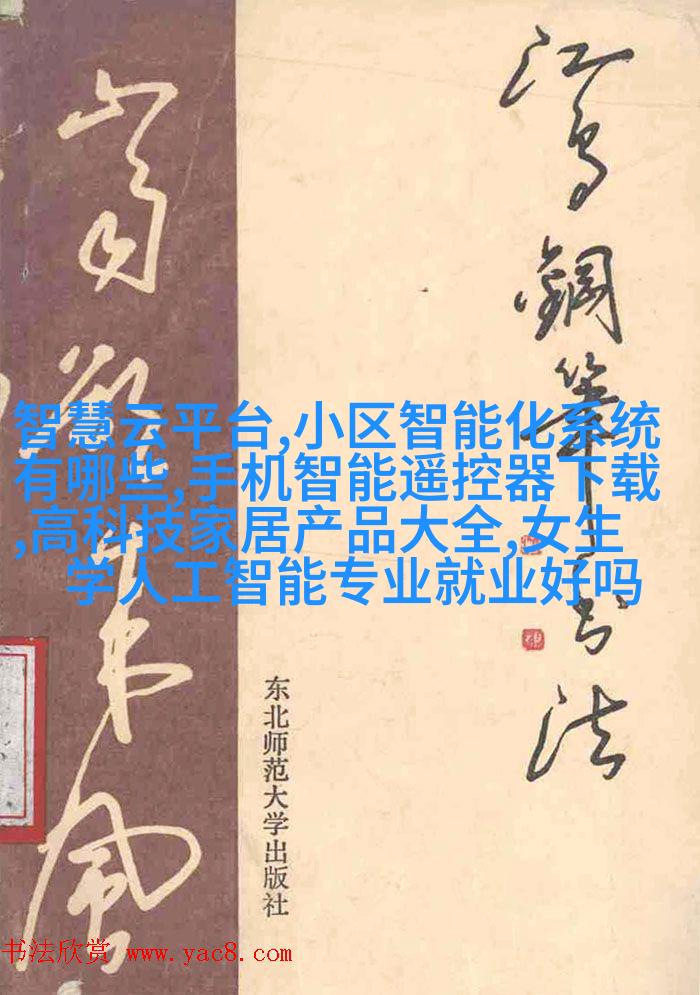 江鸟鋼筆书法
智慧云平台,小区智能化系统
有哪些,手机智能遥控器下载
,高科技家居产品大全,女生
学人工智能专业就业好吗
东北师范大学出版社
书法欣赏 www.yac8.com